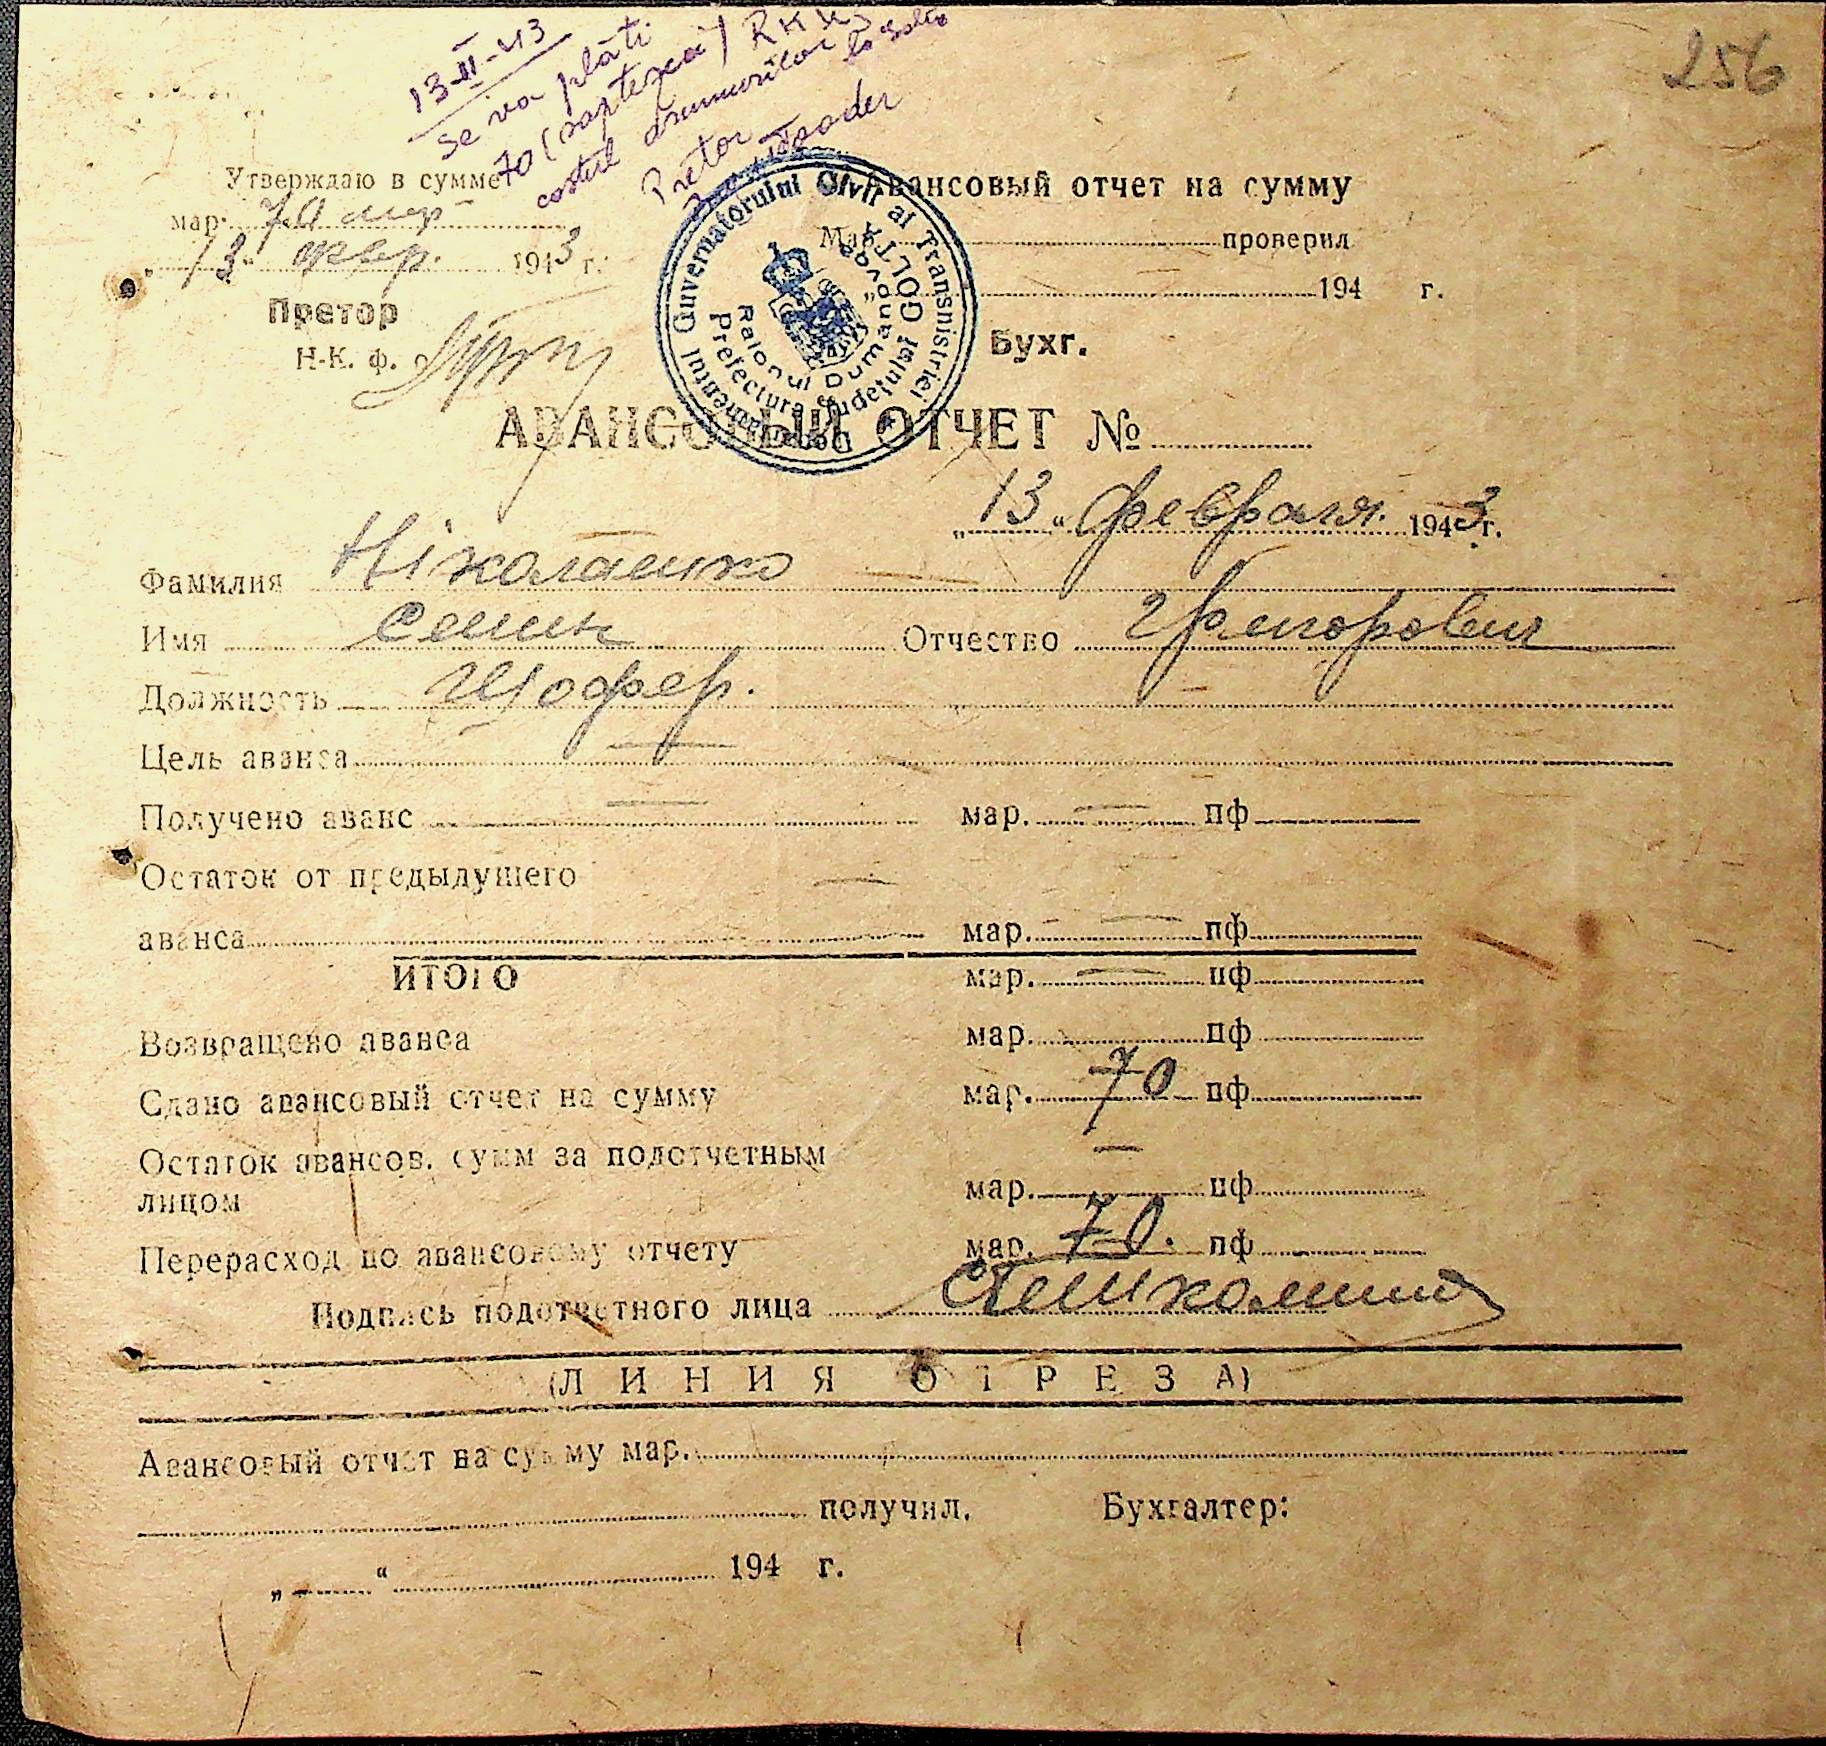 256
13-II-43
Se va plăti
70 (șaptezeci) RKKS
costul drumurilor la Golta
Pretor
Утверждаю в сумме
мар. 70 мар
"13" февр. 1943 г.
Претор
Н-К. ф. о
Guvernatorului Civil al Transnistriei
Prefectura Județului GOLTA
Raionul Dumanovca
Авансовый отчет на сумму
Мар. проверил
194 г.
Бухг.
АВАНСОВЫЙ ОТЧЕТ №
"13" февраля 1943 г.
Фамилия Ніколаенко
Имя Семен Отчество Григорович
Должность Шофер.
Цель аванса —
Получено аванс — мар. — пф
Остаток от предыдущего —
аванса мар. — пф
ИТОГО мар. — пф
Возвращено аванса мар. пф
Сдано авансовый отчет на сумму мар. 70 пф
Остаток авансов. сумм за подотчетным
лицом мар. — пф
Перерасход по авансовому отчету мар. 70. пф
Подпись подотчетного лица
(ЛИНИЯ ОТРЕЗА)
Авансовый отчет на сумму мар.
получил. Бухгалтер:
„ “ 194 г.